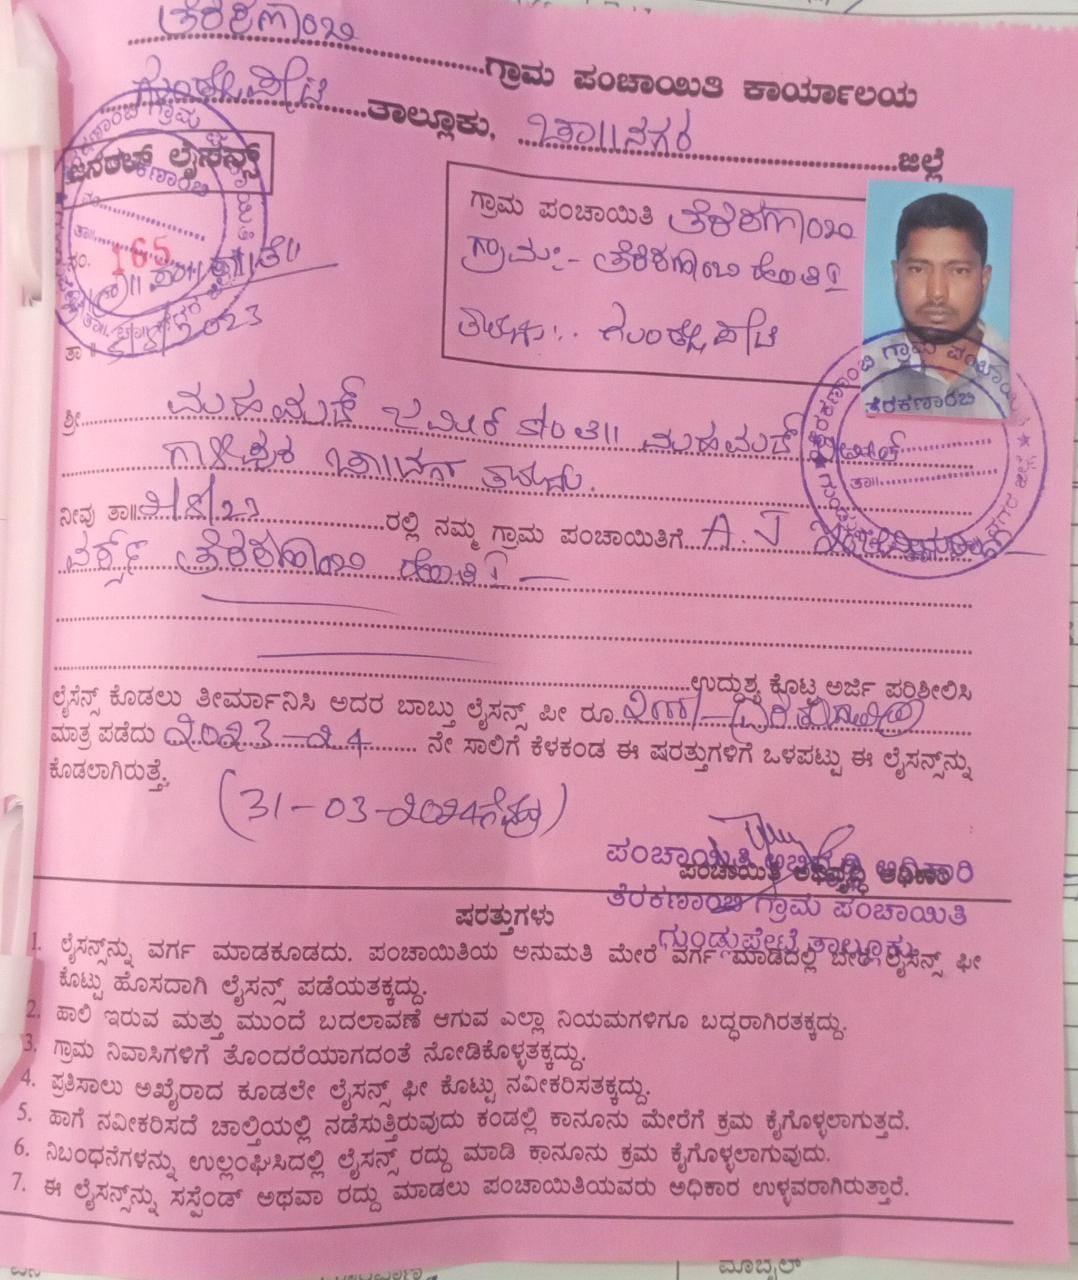 ತೆರಕಣಾಂಬಿ ಗ್ರಾಮ ಪಂಚಾಯಿತಿ ಕಾರ್ಯಾಲಯ
ಗುಂಡ್ಲುಪೇಟೆ ತಾಲ್ಲೂಕು, ಚಾ||ನಗರ ಜಿಲ್ಲೆ
ಜನರಲ್ ಲೈಸೆನ್ಸ್
ನಂ. 165
ತಾ॥ 5/8/2023
ಗ್ರಾಮ ಪಂಚಾಯಿತಿ ತೆರಕಣಾಂಬಿ
ಗ್ರಾಮ:- ತೆರಕಣಾಂಬಿ
ತಾಲ್ಲೂಕು:. ಗುಂಡ್ಲುಪೇಟೆ
ತೆರಕಣಾಂಬಿ
ಶ್ರೀ ಮಹಮದ್ ಜಮೀರ್ ಮಹಮದ್
ನೀವು ತಾ॥ ರಲ್ಲಿ ನಮ್ಮ ಗ್ರಾಮ ಪಂಚಾಯಿತಿಗೆ A.J
ವರ್ಕ್ಸ್ ತೆರಕಣಾಂಬಿ
ಉದ್ದುಶ್ಯ ಕೊಟ್ಟ ಅರ್ಜಿ ಪರಿಶೀಲಿಸಿ
ಲೈಸೆನ್ಸ್ ಕೊಡಲು ತೀರ್ಮಾನಿಸಿ ಅದರ ಬಾಬ್ತು ಲೈಸೆನ್ಸ್ ಪೀ ರೂ
ಮಾತ್ರ ಪಡೆದು 2023-24 ನೇ ಸಾಲಿಗೆ ಕೆಳಕಂಡ ಈ ಷರತ್ತುಗಳಿಗೆ ಒಳಪಟ್ಟು ಈ ಲೈಸೆನ್ಸ್‌ನ್ನು
ಕೊಡಲಾಗಿರುತ್ತೆ.
(31-03-2024ಗೆ
ಪಂಚಾಯಿತಿ ಅಭಿವೃದ್ಧಿ ಅಧಿಕಾರಿ
ತೆರಕಣಾಂಬಿ ಗ್ರಾಮ ಪಂಚಾಯಿತಿ
ಗುಂಡ್ಲುಪೇಟೆ ತಾಲ್ಲೂಕು
ಷರತ್ತುಗಳು
1. ಲೈಸನ್ಸ್‌ನ್ನು ವರ್ಗ ಮಾಡಕೂಡದು. ಪಂಚಾಯಿತಿಯ ಅನುಮತಿ ಮೇರೆ ವರ್ಗ ಮಾಡಿದಲ್ಲಿ ಬೇರೆ ಲೈಸೆನ್ಸ್ ಫೀ
ಕೊಟ್ಟು ಹೊಸದಾಗಿ ಲೈಸೆನ್ಸ್ ಪಡೆಯತಕ್ಕದ್ದು.
2. ಹಾಲಿ ಇರುವ ಮತ್ತು ಮುಂದೆ ಬದಲಾವಣೆ ಆಗುವ ಎಲ್ಲಾ ನಿಯಮಗಳಿಗೂ ಬದ್ಧರಾಗಿರತಕ್ಕದ್ದು.
3. ಗ್ರಾಮ ನಿವಾಸಿಗಳಿಗೆ ತೊಂದರೆಯಾಗದಂತೆ ನೋಡಿಕೊಳ್ಳತಕ್ಕದ್ದು.
4. ಪ್ರತಿಸಾಲು ಅಖೈರಾದ ಕೂಡಲೇ ಲೈಸೆನ್ಸ್ ಫೀ ಕೊಟ್ಟು ನವೀಕರಿಸತಕ್ಕದ್ದು.
5. ಹಾಗೆ ನವೀಕರಿಸದೆ ಚಾಲ್ತಿಯಲ್ಲಿ ನಡೆಸುತ್ತಿರುವುದು ಕಂಡಲ್ಲಿ ಕಾನೂನು ಮೇರೆಗೆ ಕ್ರಮ ಕೈಗೊಳ್ಳಲಾಗುತ್ತದೆ.
6. ನಿಬಂಧನೆಗಳನ್ನು ಉಲ್ಲಂಘಿಸಿದಲ್ಲಿ ಲೈಸೆನ್ಸ್ ರದ್ದು ಮಾಡಿ ಕಾನೂನು ಕ್ರಮ ಕೈಗೊಳ್ಳಲಾಗುವುದು.
7. ಈ ಲೈಸನ್ಸ್‌ನ್ನು ಸಸ್ಪೆಂಡ್ ಅಥವಾ ರದ್ದು ಮಾಡಲು ಪಂಚಾಯಿತಿಯವರು ಅಧಿಕಾರ ಉಳ್ಳವರಾಗಿರುತ್ತಾರೆ.
ಮೊಬೈಲ್